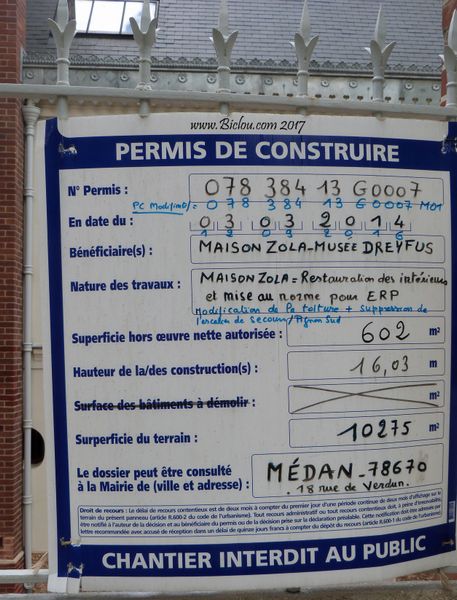 www.Biclou.com 2017
PERMIS DE CONSTRUIRE
N° Permis : 078 384 13 G0007
PC Modificatif = 078 384 13 G0007 M01
En date du : 03 03 2014
Bénéficiaire(s) : MAISON ZOLA-MUSEE DREYFUS
Nature des travaux : MAISON ZOLA = Restauration des intérieurs
et mise au norme pour ERP
Modification de la toiture + Suppression de
l'escalier de Secours/Pignon Sud
Superficie hors œuvre nette autorisée : 602 m²
Hauteur de la/des construction(s) : 16,03 m
Surface des bâtiments à démolir : m²
Surperficie du terrain : 10275 m²
Le dossier peut être consulté
à la Mairie de (ville et adresse) : MÉDAN_78670
18 rue de Verdun.
Droit de recours : Le délai de recours contentieux est de deux mois à compter du premier jour d'une période continue de deux mois d'affichage sur le
terrain du présent panneau (article R.600-2 du code de l'urbanisme). Tout recours administratif ou tout recours contentieux doit, à peine d'irrecevabilité,
être notifié à l'auteur de la décision et au bénéficiaire du permis ou de la décision prise sur la déclaration préalable. Cette notification doit être adressée par
lettre recommandée avec accusé de réception dans un délai de quinze jours francs à compter du dépôt du recours (article R.600-1 du code de l'urbanisme).
CHANTIER INTERDIT AU PUBLIC